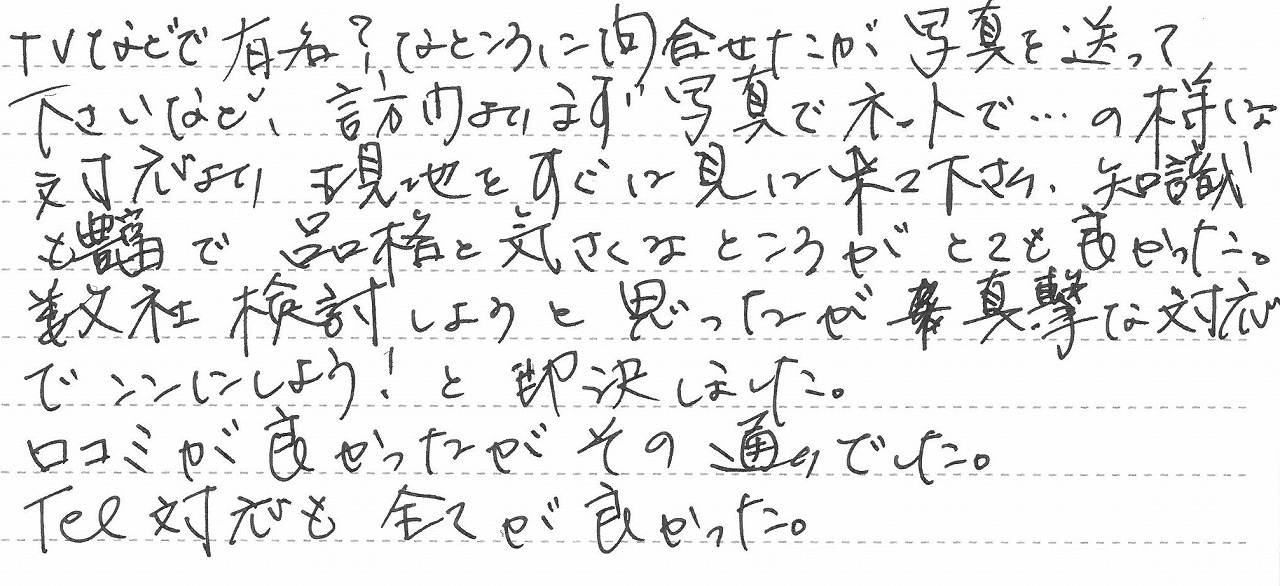 TVなどで有名?なところに問合せたが写真を送って
下さいなど、訪問よりまず写真でネットで…の様な
対応より現地をすぐに見に来て下さり、知識
も豊富で品格と気さくなところがとても良かった。
数社検討しようと思ったが真撃な対応
でココにしよう!と即決しました。
口コミが良かったがその通りでした。
Tel対応も全てが良かった。